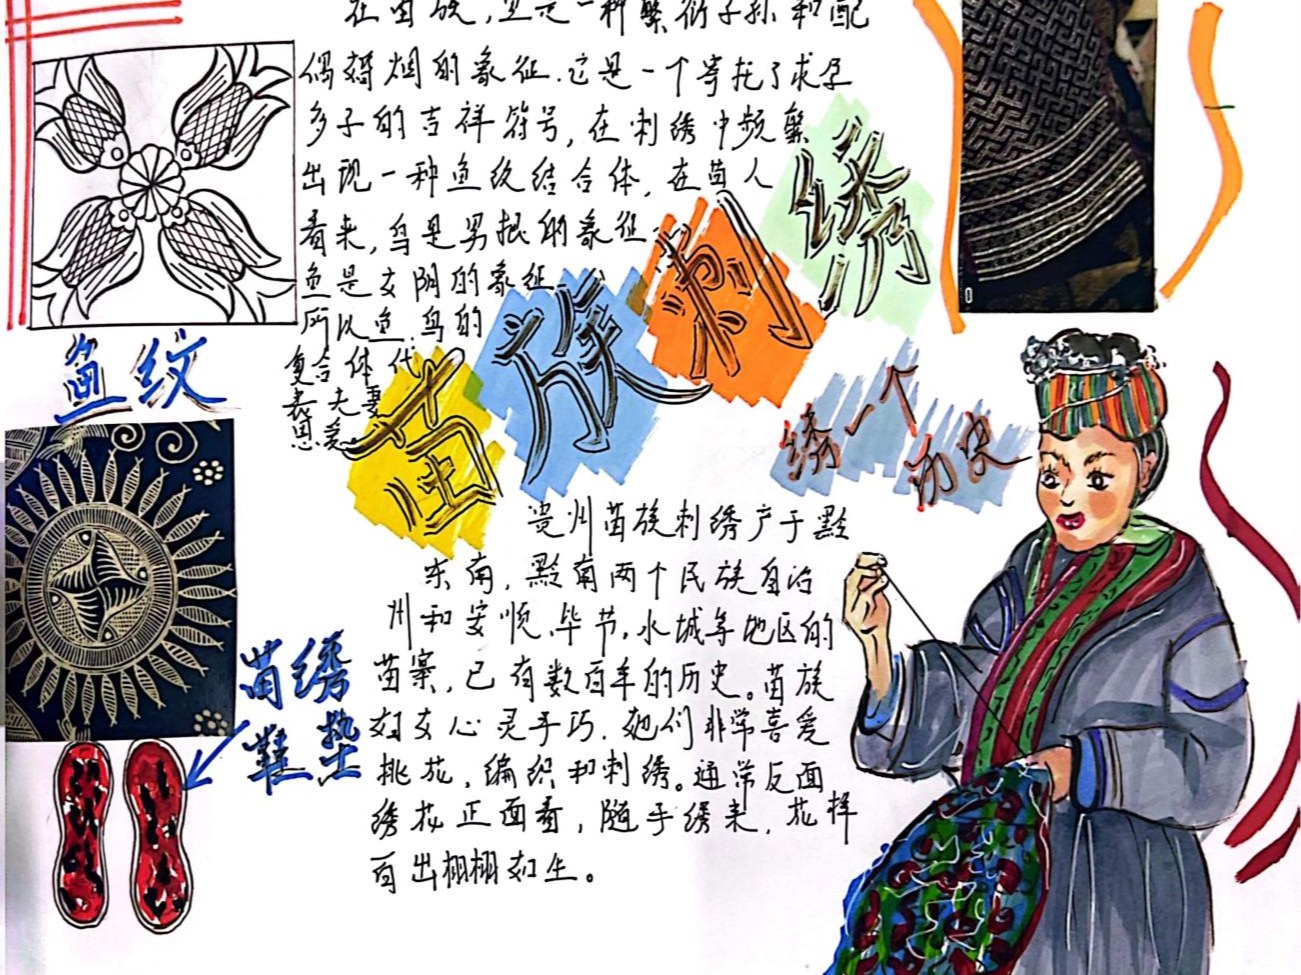 在苗族，鱼是一种繁衍子孙和配
偶婚姻的象征.这是一个寄托了求孕
多子的吉祥符号，在刺绣中频繁
出现一种鱼纹结合体，在苗人
看来，鸟是男根的象征
鱼是女阴的象征
所以鱼.鸟的
复合体代
表夫妻
恩爱
鱼纹
苗族刺绣
绣一个
历史
贵州苗族刺绣产于黔
东南，黔南两个民族自治
州和安顺.毕节.水城等地区的
苗寨，已有数百年的历史。苗族
妇女心灵手巧.她们非常喜爱
挑花，编织和刺绣。通常反面
绣花正面看，随手绣来，花样
百出栩栩如生。
苗绣
鞋垫